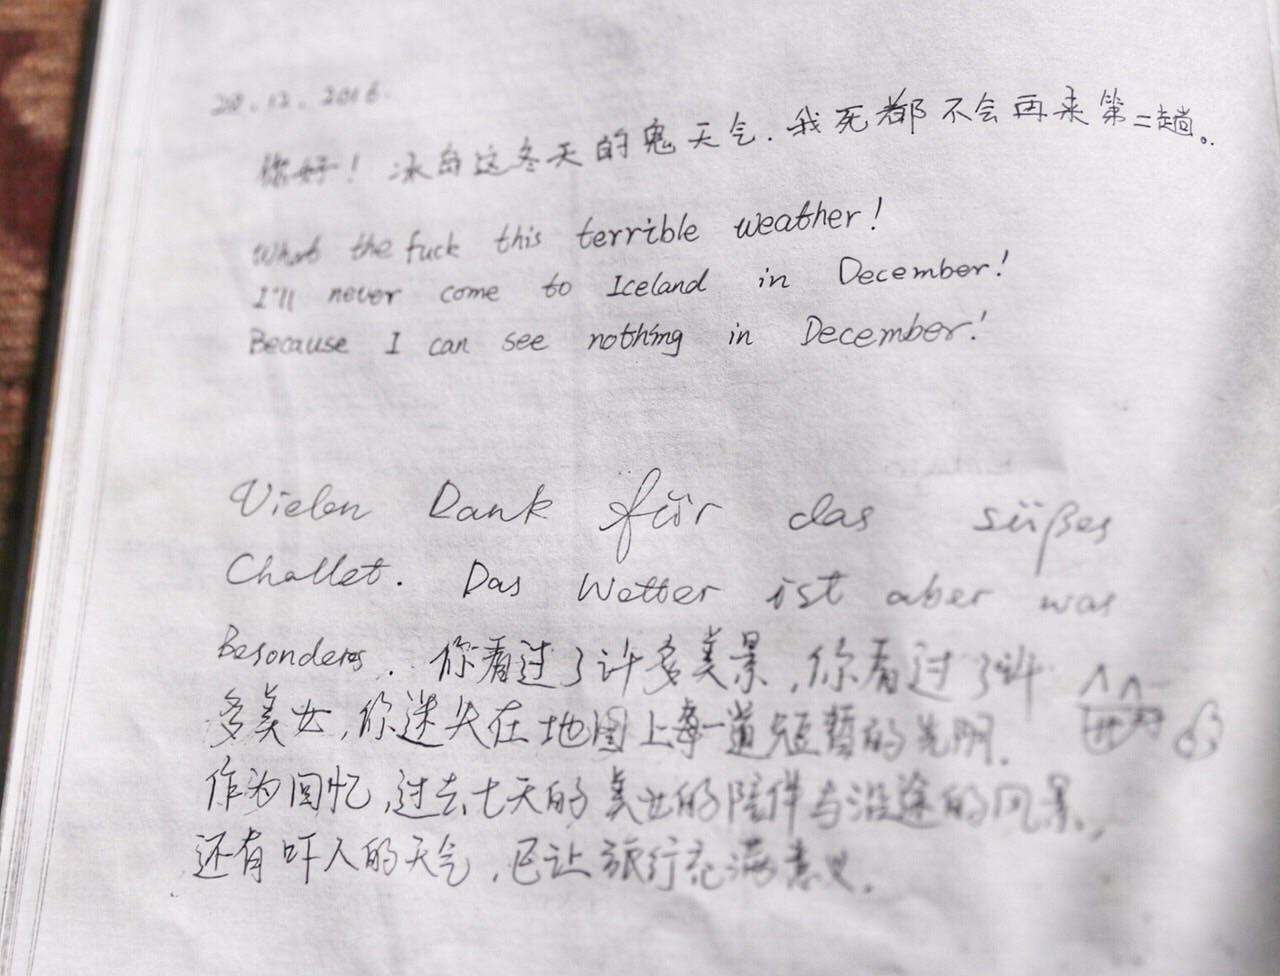 20.12.2016.
你好！冰岛这冬天的鬼天气.我死都不会再来第二趟。
What the fuck this terrible weather!
I'll never come to Iceland in December!
Because I can see nothing in December!
Vielen Dank für das süßes
Challet. Das Wetter ist aber was
Besonderes. 你看过了许多美景,你看过了许
多美女,你迷失在地图上每一道短暂的光阴.
作为回忆,过去七天的美女的陪伴与沿途的风景,
还有吓人的天气,已让旅行充满意义.